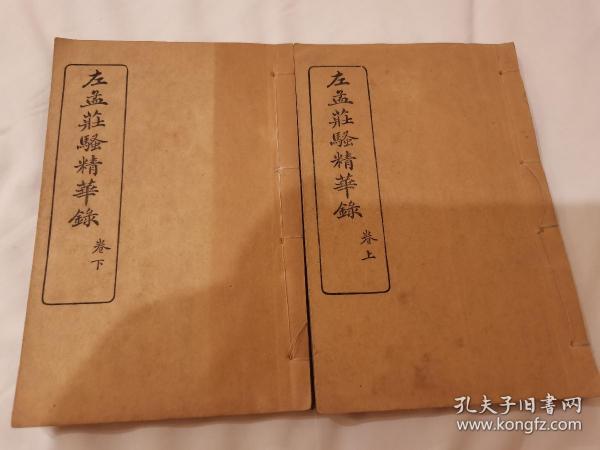 左孟莊騷精華錄
卷下
左孟莊騷精華錄
卷上
孔夫子旧书网
www.kongfz.com